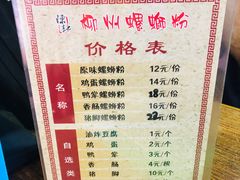 螺蛳粉
价格表
名称
原味螺蛳粉 12元/份
鸡蛋螺蛳粉 14元/份
鸭掌螺蛳粉 18元/份
香肠螺蛳粉 16元/份
猪脚螺蛳粉 22元/份
自选类
油炸豆腐 1元/个
鸡蛋 2元/个
鸭掌 3元/个
香肠 4元/根
猪脚 10元/个